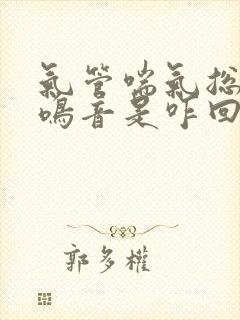 氣管喘氣總
鳴音是咋回
郭多權